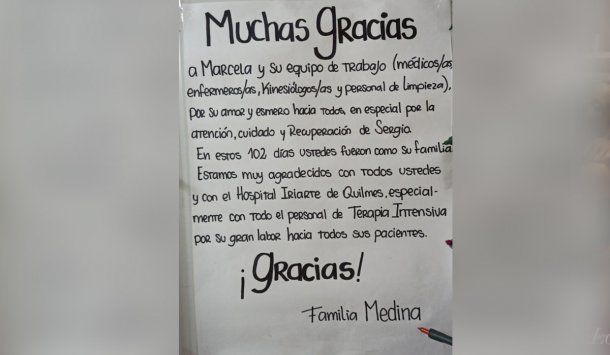 Muchas gracias
a Marcela y su equipo de trabajo (médicos/as,
enfermeros/as, Kinesiólogos/as y personal de limpieza),
por su amor y esmero hacia todos, en especial por la
atención, cuidado y Recuperación de Sergio.
En estos 102 días ustedes fueron como su familia.
Estamos muy agradecidos con todos ustedes
y con el Hospital Iriarte de Quilmes, especial-
mente con todo el personal de Terapia Intensiva
por su gran labor hacia todos sus pacientes.
¡Gracias!
Familia Medina